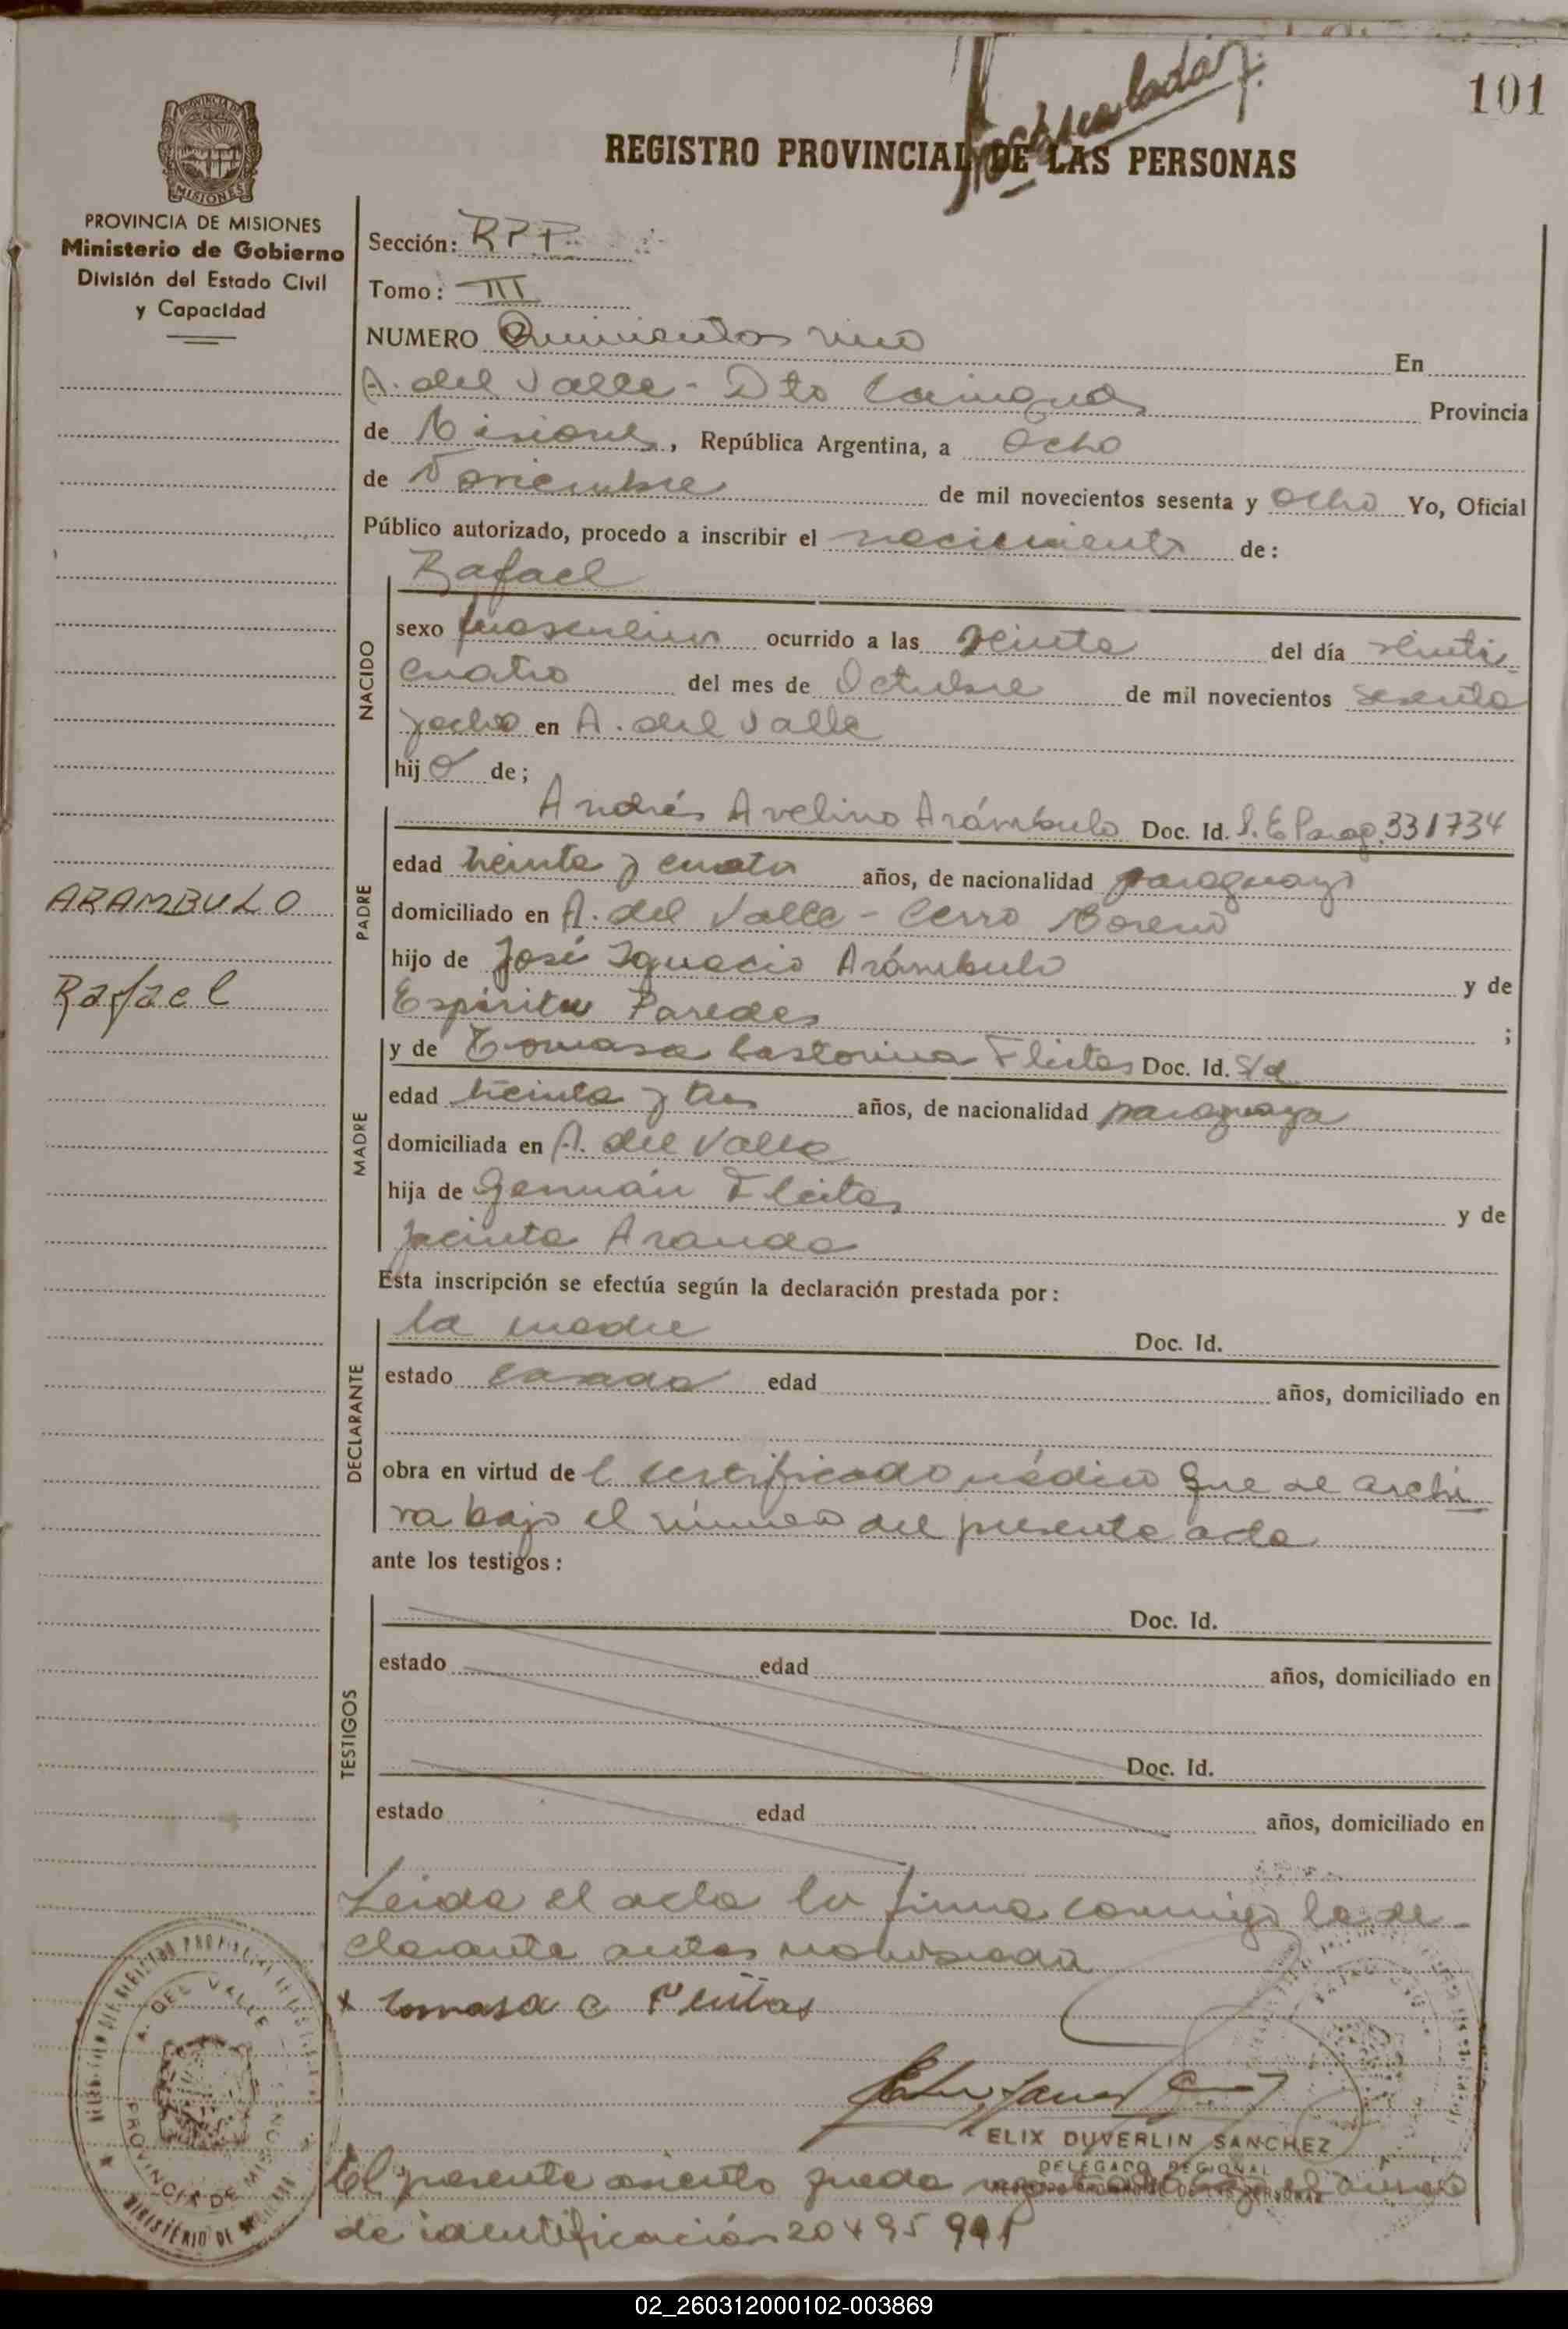 101
REGISTRO PROVINCIAL DE LAS PERSONAS
PROVINCIA DE MISIONES
Ministerio de Gobierno
División del Estado Civil
y Capacidad
Sección: RPP
Tomo: III
NUMERO Quinientos uno En
A. del Valle - Dto Cainguas Provincia
de Misiones, República Argentina, a Ocho
de Noviembre de mil novecientos sesenta y ocho Yo, Oficial
Público autorizado, procedo a inscribir el nacimiento de:
NACIDO
Rafael
sexo masculino ocurrido a las veinte del día veinti-
cuatro del mes de Octubre de mil novecientos sesenta
y ocho en A. del Valle
hij o de;
PADRE
Andrés Avelino Arámbulo Doc. Id. Parag. 331734
edad treinta y cuatro años, de nacionalidad paraguayo
domiciliado en A. del Valle - Cerro Moreno
hijo de José Ignacio Arámbulo y de
Espíritu Paredes ;
ARAMBULO
Rafael
MADRE
y de Tomasa Castorina Fleitas Doc. Id. S/d
edad treinta y tres años, de nacionalidad paraguaya
domiciliada en A. del Valle
hija de Germán Fleitas y de
Jacinta Aranda
Esta inscripción se efectúa según la declaración prestada por:
DECLARANTE
la madre Doc. Id.
estado casada edad años, domiciliado en
obra en virtud de l certificado médico que se archi
va bajo el número del presente acta
ante los testigos:
TESTIGOS
Doc. Id.
estado edad años, domiciliado en
Doc. Id.
estado edad años, domiciliado en
Leida el acta la firma conmigo la de-
clarante antes nombrada
x tomasa c Fleitas
ELIX DUVERLIN SANCHEZ
DELEGADO REGIONAL
El presente asiento queda
de identificación
A. DEL VALLE
PROVINCIA DE MISIONES
MINISTERIO DE
02_260312000102-003869